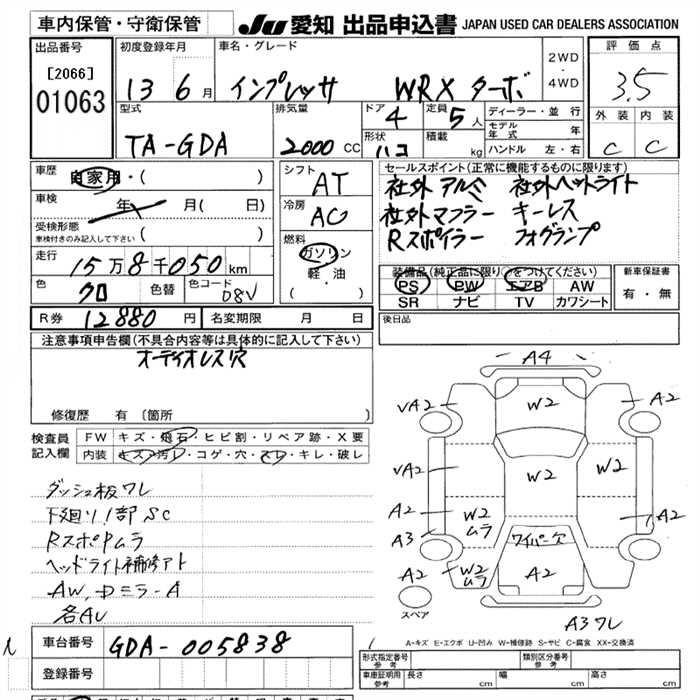 車内保管・守衛保管
JU 愛知 出品申込書 JAPAN USED CAR DEALERS ASSOCIATION
出品番号
[2066]
01063
初度登録年月
13 6月
車名・グレード
インプレッサ WRX ターボ
2WD
4WD
評価点
3.5
外装 内装
C C
型式
TA-GDA
排気量
2000 CC
ドア
4
定員
5人
形状
ハコ
積載
kg
ディーラー・並行
モデル年式 年
ハンドル 左・右
車歴
自家用・( )
車検
年 月( 日)
受検形態
車検付きのみ記入して下さい ( )
走行
15万8千050km
色
クロ
色替
色コード
08V
シフト
AT
冷房
AC
燃料
ガソリン
軽・油
( )
セールスポイント(正常に機能するものに限ります)
社外アルミ 社外ヘットライト
社外マフラー キーレス
Rスポイラー フォグランプ
装備品(純正品に限り○をつけてください)
PS PW エアB AW
SR ナビ TV カワシート
新車保証書
有・無
後日品
R券 12880円
名変期限 月 日
注意事項申告欄(不具合内容等は具体的に記入して下さい)
オーディオレス穴
修復歴 有 〔箇所 〕
検査員記入欄
FW キズ・飛石・ヒビ割・リペア跡・X要
内装 キズ・汚レ・コゲ・穴・スレ・キレ・破レ
ダッシュ板ワレ
下廻り1部SC
RスポPムラ
ヘッドライト補修アト
各AU
A4
W2
VA2
A2
VA2
W2
A2
W2
ムラ
A2
A3
ワイパー穴
A2
W2
ムラ
A2
スペア
A3ワレ
A-キズ E-エクボ U-凹み W-補修跡 S-サビ C-腐食 XX-交換済
車台番号 GDA-005838
登録番号
形式指定番号
参考
類別区分番号
参考
車庫証明用
参考
長さ cm 幅 cm 高さ cm